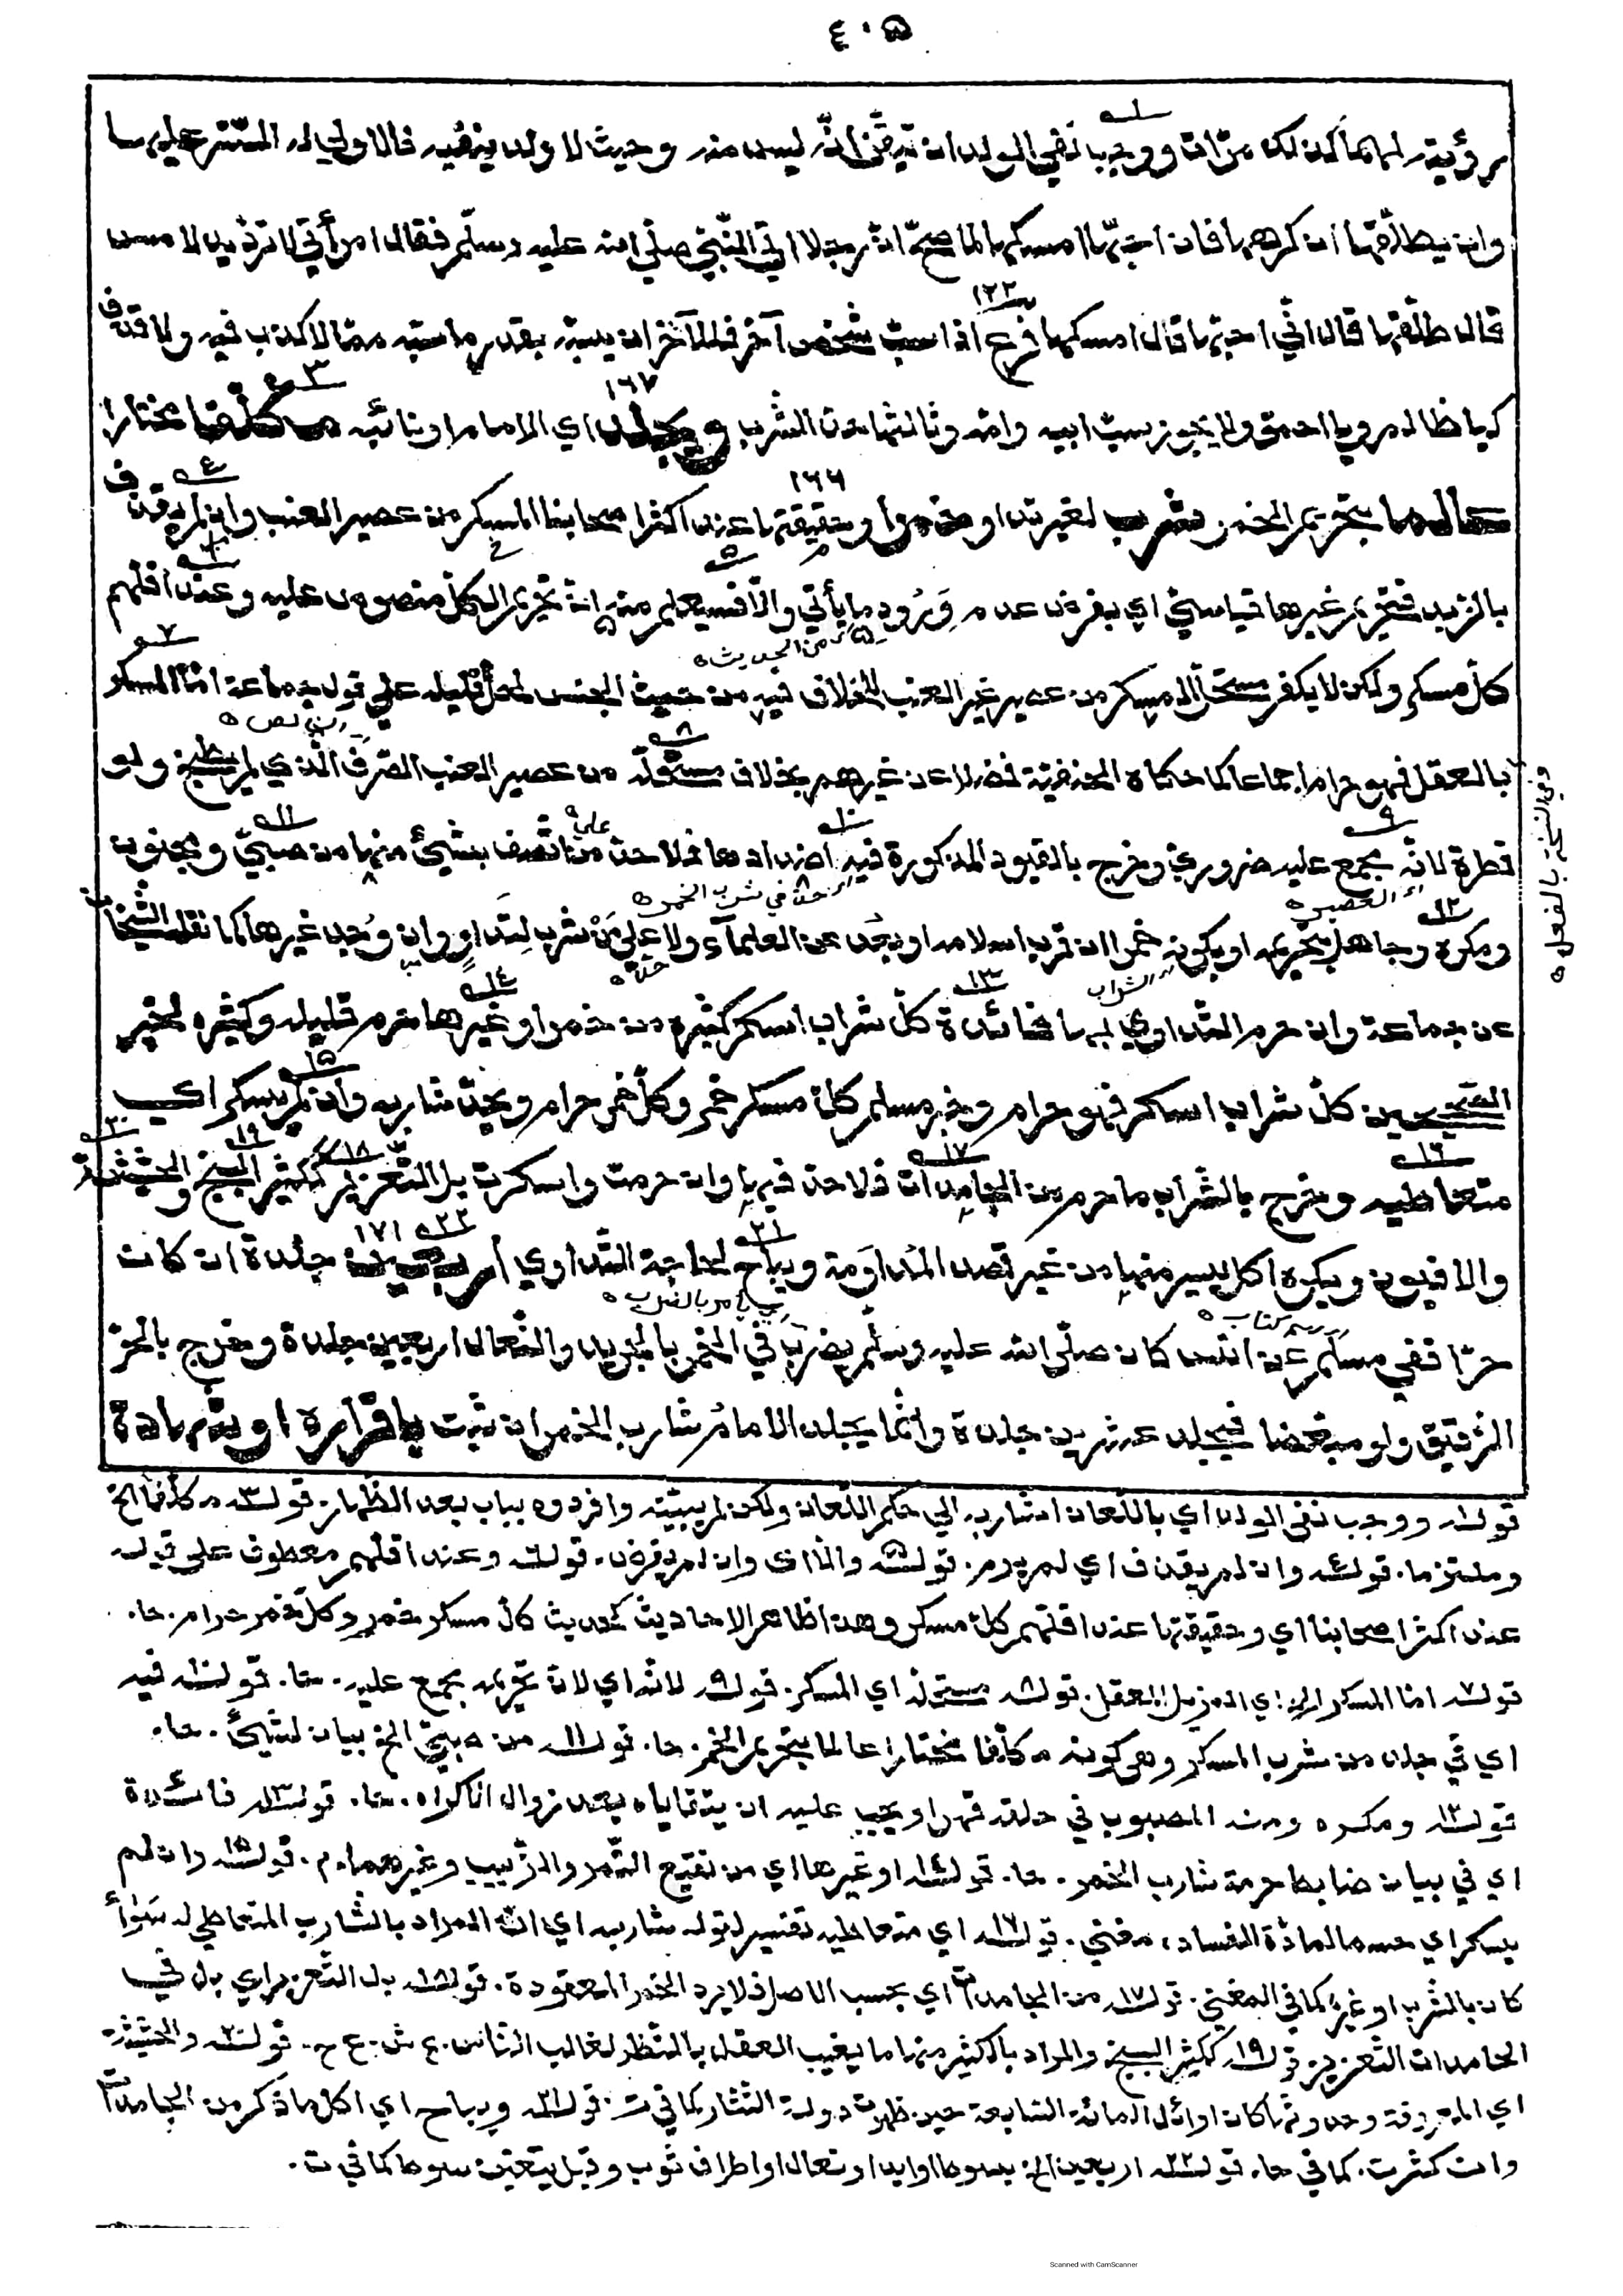 ٤٠٥
رؤيته لهما كذلك مرّات ووجب نفي الولد ان تيقّن انّه ليس منه وحيث لا ولد ينفيه فالاولى له السّتر عليها
وان يطلّقها ان كرهها فان احبّها امسكها لما صحّ انّ رجلا اتى النّبيّ صلّى الله عليه وسلّم فقال امرأتي لا تردّ يد لامس
قال طلّقها قال انّي احبّها قال امسكها فرع اذا سبّ شخص آخر فللآخر ان يسبّه بقدر ما سبّه ممّا لا كذب فيه ولا قذف
كيا ظالم ويا احمق ولا يجوز سبّ ابيه وامّه وثالثها حدّ الشّرب ويجلد اي الامام او نائبه مكلّفا مختارا
عالما بتحريم الخمر شرب لغير تداو خمرا وحقيقتها عند اكثر اصحابنا المسكر من عصير العنب وان لم يقذف
بالزبد فتحريم غيرها قياسيّ اي بفرض عدم وُرود ما يأتي والّا فسيعلم منه انّ تحريم الكلّ منصوص عليه وعند اقلّهم
من الحديث
كلّ مسكر ولكن لا يكفر مستحلّ المسكر من عصير غير العنب للخلاف فيه من حيث الجنس لحلّ قليله على قول جماعة امّا المسكر
بالعقل فهو حرام اجماعا كما حكاه الحنفيّة فضلا عن غيرهم بخلاف مستحلّه من عصير العنب الصّرف الّذي لم يطبخ ولو
وفي النسخة بالفعل
قطرة لانّه مجمع عليه ضروريّ وخرج بالقيود المذكورة فيه اضدادها فلا حدّ على من اتّصف بشيئ منها من صبيّ ومجنون
العصير
حدّ في شرب الخمر
ومكره وجاهل بتحريمه او بكونه خمرا ان قرب اسلامه او بعد عن العلمآء ولا على من شرب لتداو وان وُجد غيرها كما نقله الشّيخان
الشراب
حدّ
عن جماعة وان حرم التّداوي بها فائدة كلّ شراب اسكر كثيره من خمر او غيرها حرم قليله وكثيره لخبر
الصّحيحين كلّ شراب اسكر فهو حرام وخبر مسلم كلّ مسكر خمر وكلّ خمر حرام ويحدّ شاربه وان لم يسكر اي
متعاطيه وخرج بالشّراب ما حرم من الجامدات فلا حدّ فيها وان حرمت واسكرت بل التّعزير ككثير البنج والحشيشة
والافيون ويكره اكل يسير منها من غير قصد المُداوَمة ويباح لحاجة التّداوي أربعين جلدة ان كان
اي يأمر بالضرب
حرّا ففي مسلم عن انس كان صلّى الله عليه وسلّم يضرب في الخمر بالجريد والنّعال اربعين جلدة وخرج بالحرّ
الرّقيق ولو مبعّضا فيجلد عشرين جلدة وانّما يجلد الامامُ شارب الخمر ان ثبت باقراره او شهادة
قوله١ ووجب نفي الولد اي باللّعان اشار به الى حكم اللّعان ولكن لم يبيّنه وافردوه بباب بعد الظّهار. قوله٣ مكلّفا الخ
وملتزما. قوله٤ وان لم يقذف اي لم يرم. قوله٥ والّا اى وان لم يفرض. قوله٦ وعند اقلّهم معطوف على قوله
عند اكثر اصحابنا اي وحقيقتها عند اقلّهم كلّ مسكر وهذا ظاهر الاحاديث كحديث كلّ مسكر خمر وكلّ خمر حرام. حا.
قوله٧ امّا المسكر الخ اي المزيل للعقل. قوله٨ مستحلّه اي المسكر. قوله٩ لانّه اي لانّ تحريمه مجمع عليه. حا. قوله١٠ فيه
اي في جلد من شرب المسكر وهي كونه مكلّفا مختارا عالما بتحريم الخمر. حا. قوله١١ من صبيّ الخ بيان لشيئ. حا.
قوله١٢ ومكره ومنه المصبوب في حلقه قهرا ويجب عليه ان يتقاياه بعد زوال الاكراه. حا. قوله١٣ فائدة
اي في بيان ضابط حرمة شارب الخمر. حا. قوله١٤ او غيرها اي من نقيع التّمر والزّبيب وغيرهما. م. قوله١٥ وان لم
يسكر اي حسما لمادّة الفساد، مغني. قوله١٦ اي متعاطيه تفسير لقوله شاربه اي انّ المراد بالشّارب المتعاطي له سَوَاءٌ
كان بالشّرب او غيره كما في المغني. قوله١٧ من الجامدات اي بحسب الاصل فلا يرد الخمر المعقودة. قوله١٨ بل التّعزير اي بل في
الجامدات التّعزير. قوله١٩ ككثير البنج والمراد بالكثير منها ما يغيب العقل بالنّظر لغالب النّاس. ع ش. ع ح. قوله٢٠ والحشيشة
اي المعروفة وحدوثها كان اوائل المائة السّابعة حين ظهرت دولة التّتار كما في ت. قوله٢١ ويباح اي اكل ما ذكر من الجامدات
وان كثرت. كما في حا. قوله٢٢ اربعين الخ بسوط او ايد او نعال او اطراف ثوب وقيل يتعيّن سوط كما في ت.
Scanned with CamScanner